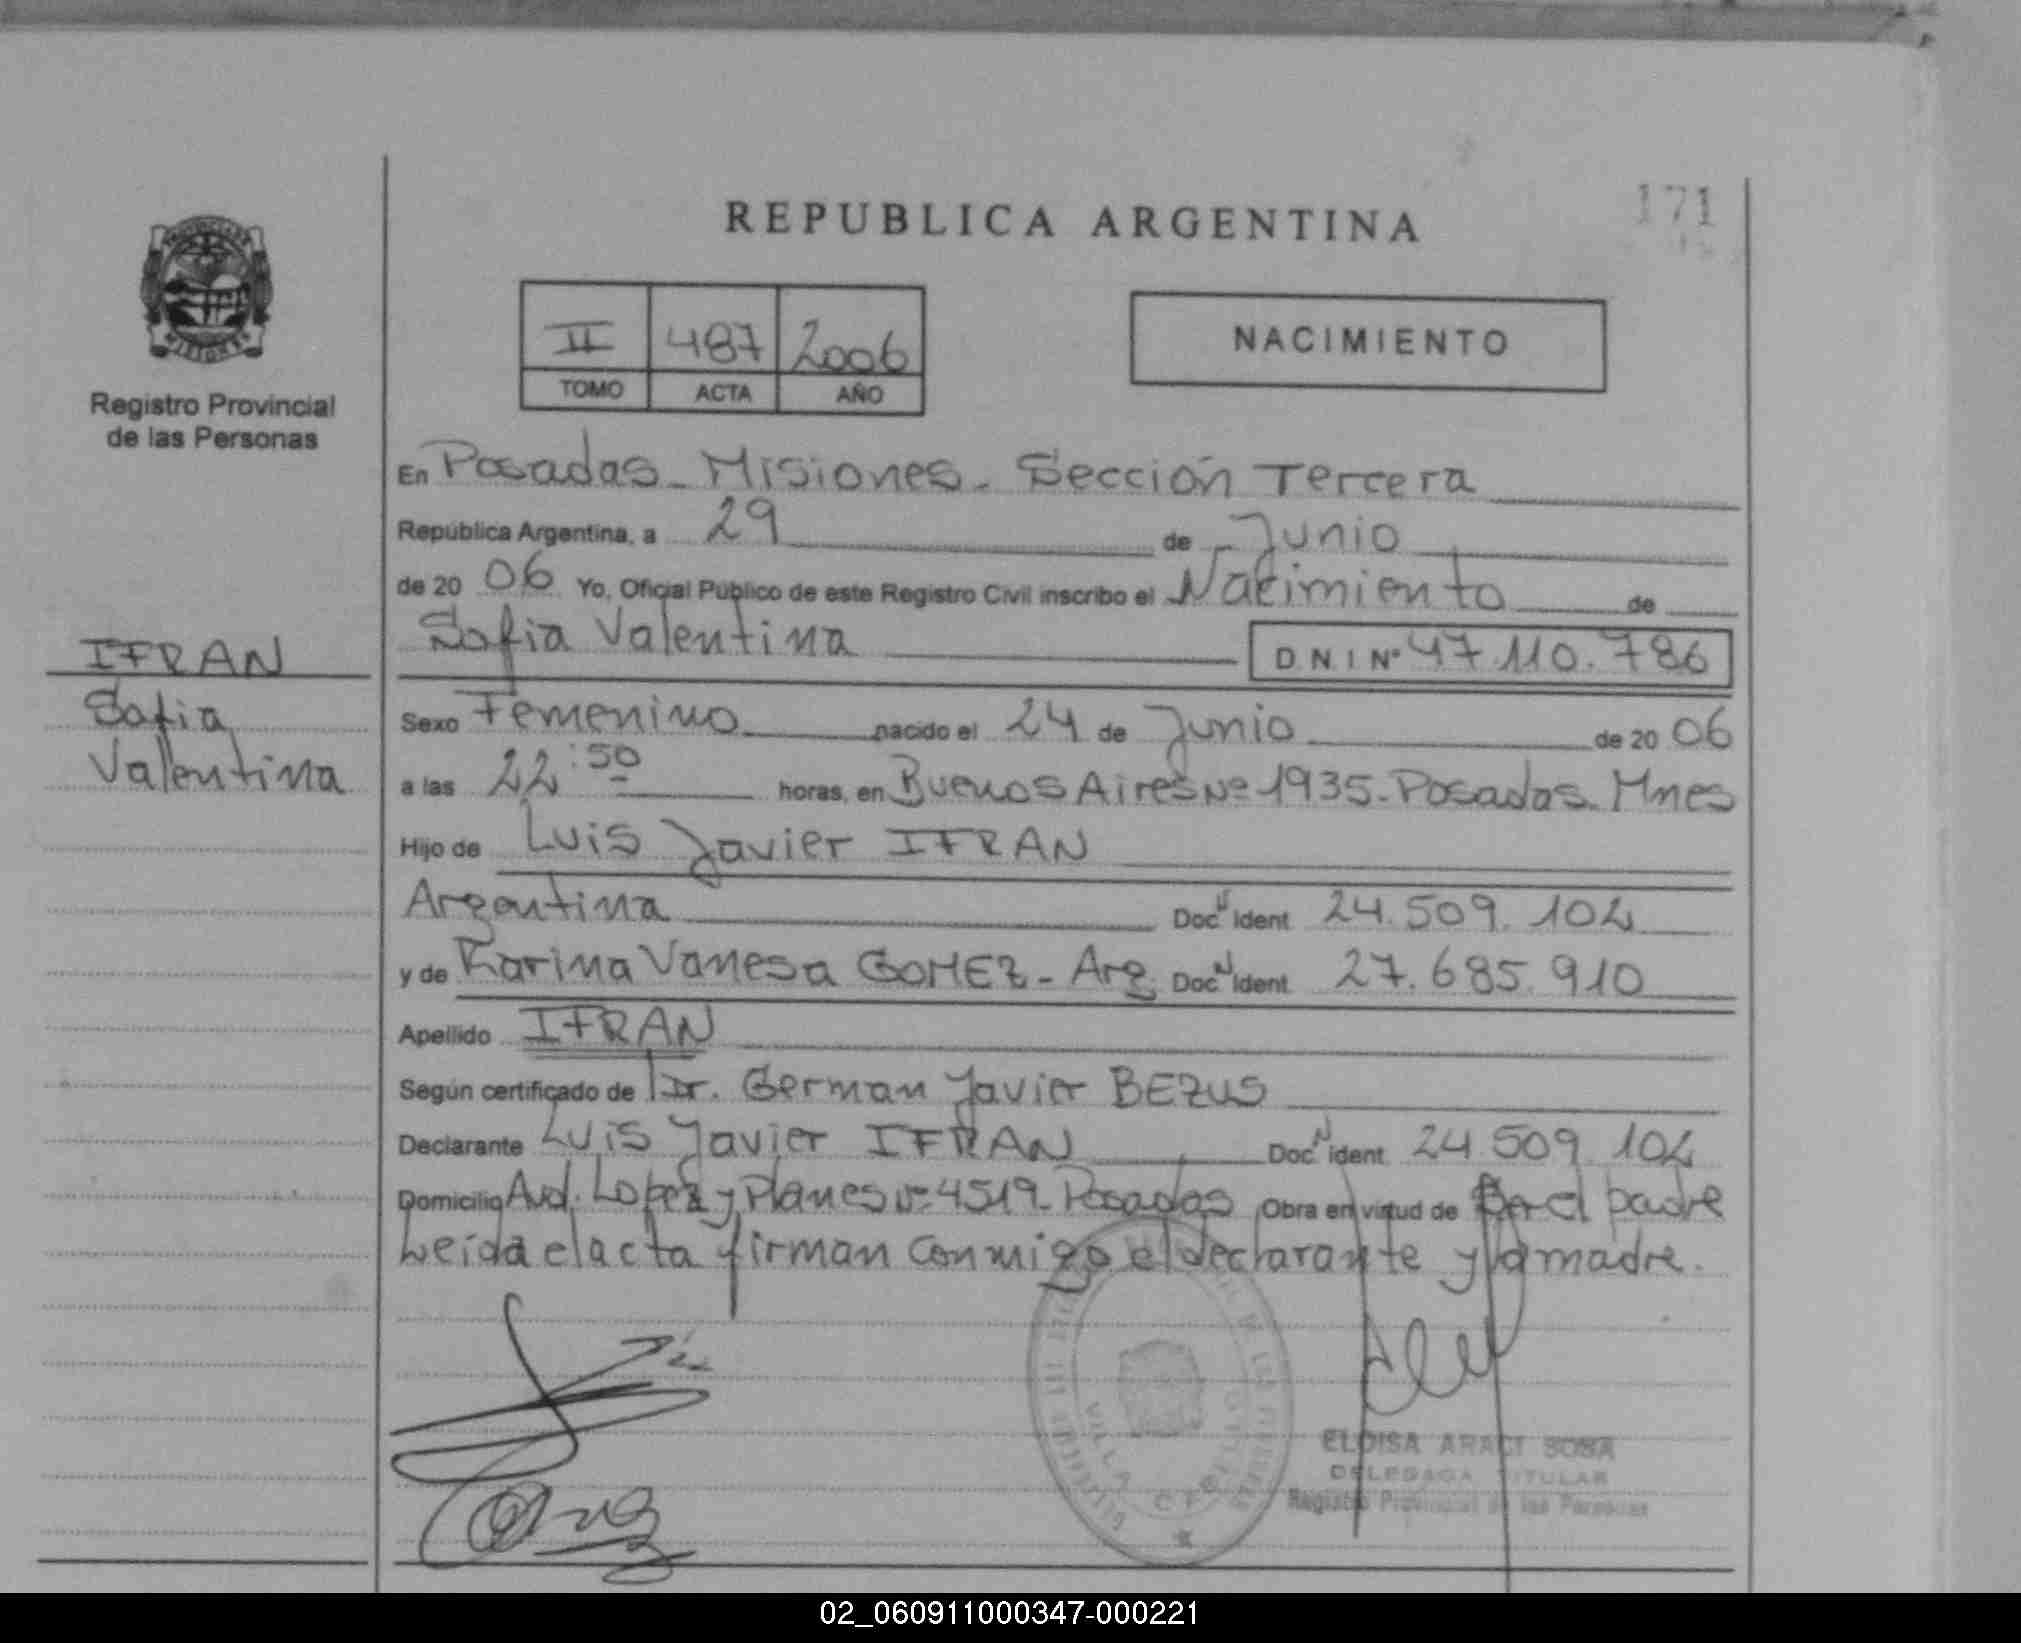 171
REPUBLICA ARGENTINA
II 487 2006
TOMO ACTA AÑO
NACIMIENTO
Registro Provincial
de las Personas
IFRAN
Sofia
Valentina
En Posadas - Misiones - Sección Tercera
República Argentina, a 29 de Junio
de 20 06 Yo, Oficial Público de este Registro Civil inscribo el Nacimiento de
Sofia Valentina D N I Nº 47.110.786
Sexo Femenino nacido el 24 de Junio de 20 06
a las 22:50 horas, en Buenos Aires Nº 1935 - Posadas - Mnes
Hijo de Luis Javier IFRAN
Argentina Doc N Ident 24.509.102
y de Karina Vanesa GOMEZ - Arg Doc N Ident 27.685.910
Apellido IFRAN
Según certificado de Dr. German Javier BEZUS
Declarante Luis Javier IFRAN Doc N ident 24.509.102
Domicilio Avd. Lopez y Planes Nº 4519 - Posadas Obra en virtud de Ser el padre
Leída el acta firman conmigo el declarante y la madre.
ELOISA ARACI SOSA
DELEGADA TITULAR
Registro Provincial de las Personas
02_060911000347-000221